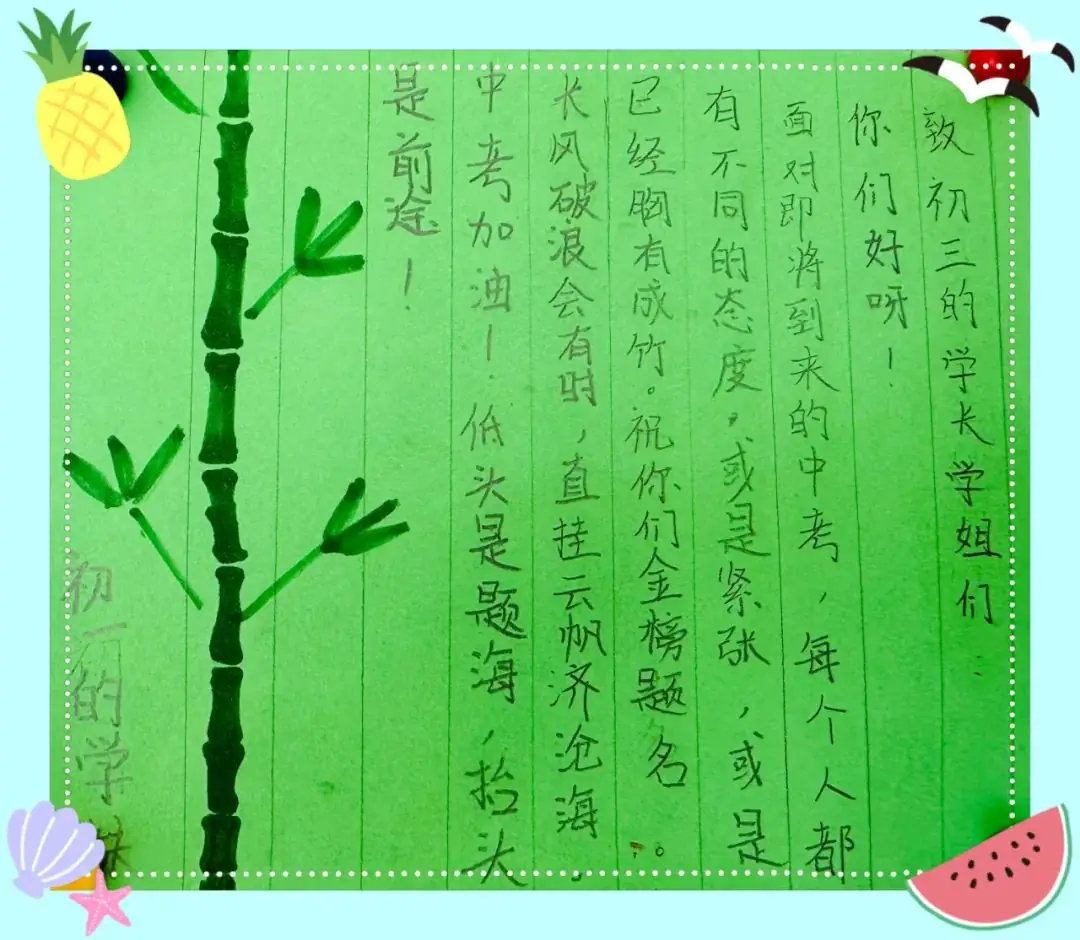 致初三的学长学姐们：
你们好呀！
面对即将到来的中考，每个人都
有不同的态度。或是紧张，或是
已经胸有成竹。祝你们金榜题名。
长风破浪会有时，直挂云帆济沧海。
中考加油！低头是题海，抬头
是前途！
初一的学妹